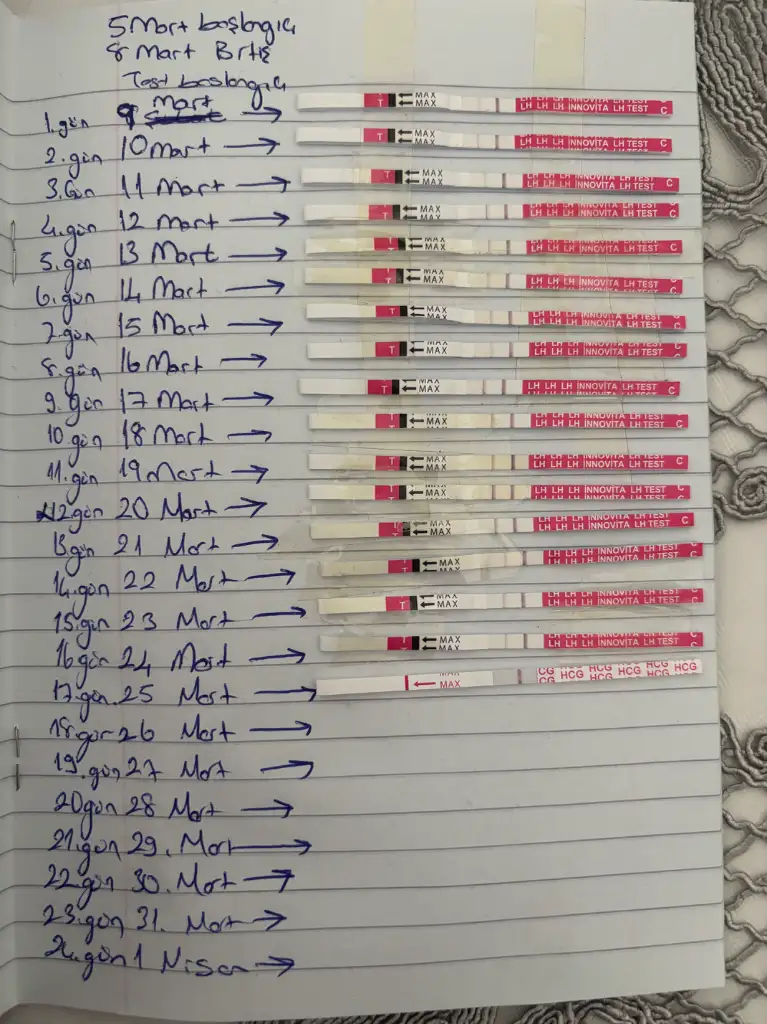 5 Mart başlangıç
8 Mart Bitiş
Test başlangıç
Mart
1.gün 9 → ← MAX ← MAX LH LH LH INNOVITA LH TEST C
2.gün 10 Mart → T ← MAX ← MAX LH LH LH INNOVITA LH TEST C
3.Gün 11 Mart → T ← MAX ← MAX LH LH LH INNOVITA LH TEST C
4.gün 12 Mart → T ← MAX ← MAX LH LH LH INNOVITA LH TEST C
5.gün 13 Mart → T ← MAX ← MAX LH LH LH INNOVITA LH TEST C
6.gün 14 Mart → ← MAX ← MAX LH LH LH INNOVITA LH TEST
7.gün 15 Mart → T ← MAX ← MAX LH LH LH INNOVITA LH TEST C
8.gün 16 Mart → T ← MAX ← MAX LH LH LH INNOVITA LH TEST
9.gün 17 Mart → T ← MAX ← MAX LH LH LH INNOVITA LH TEST C
10.gün 18 Mart → ← MAX ← MAX LH LH LH INNOVITA LH TEST
11.gün 19 Mart → T ← MAX ← MAX LH LH LH INNOVITA LH TEST C
12.gün 20 Mart → ← MAX ← MAX LH LH LH INNOVITA LH TEST
13.gün 21 Mart → ← MAX ← MAX LH LH LH INNOVITA LH TEST C
14.gün 22 Mart → ← MAX ← MAX LH LH LH INNOVITA LH TEST
15.gün 23 Mart → T ← MAX ← MAX LH LH LH INNOVITA LH TEST
16.gün 24 Mart → ← MAX ← MAX LH LH LH INNOVITA LH TEST
17.gün 25 Mart → ← MAX HCG HCG HCG HCG HCG
18.gün 26 Mart →
19.gün 27 Mart →
20gün 28 Mart →
21.gün 29. Mart →
22.gün 30. Mart →
23.gün 31. Mart →
24.gün 1 Nisan →